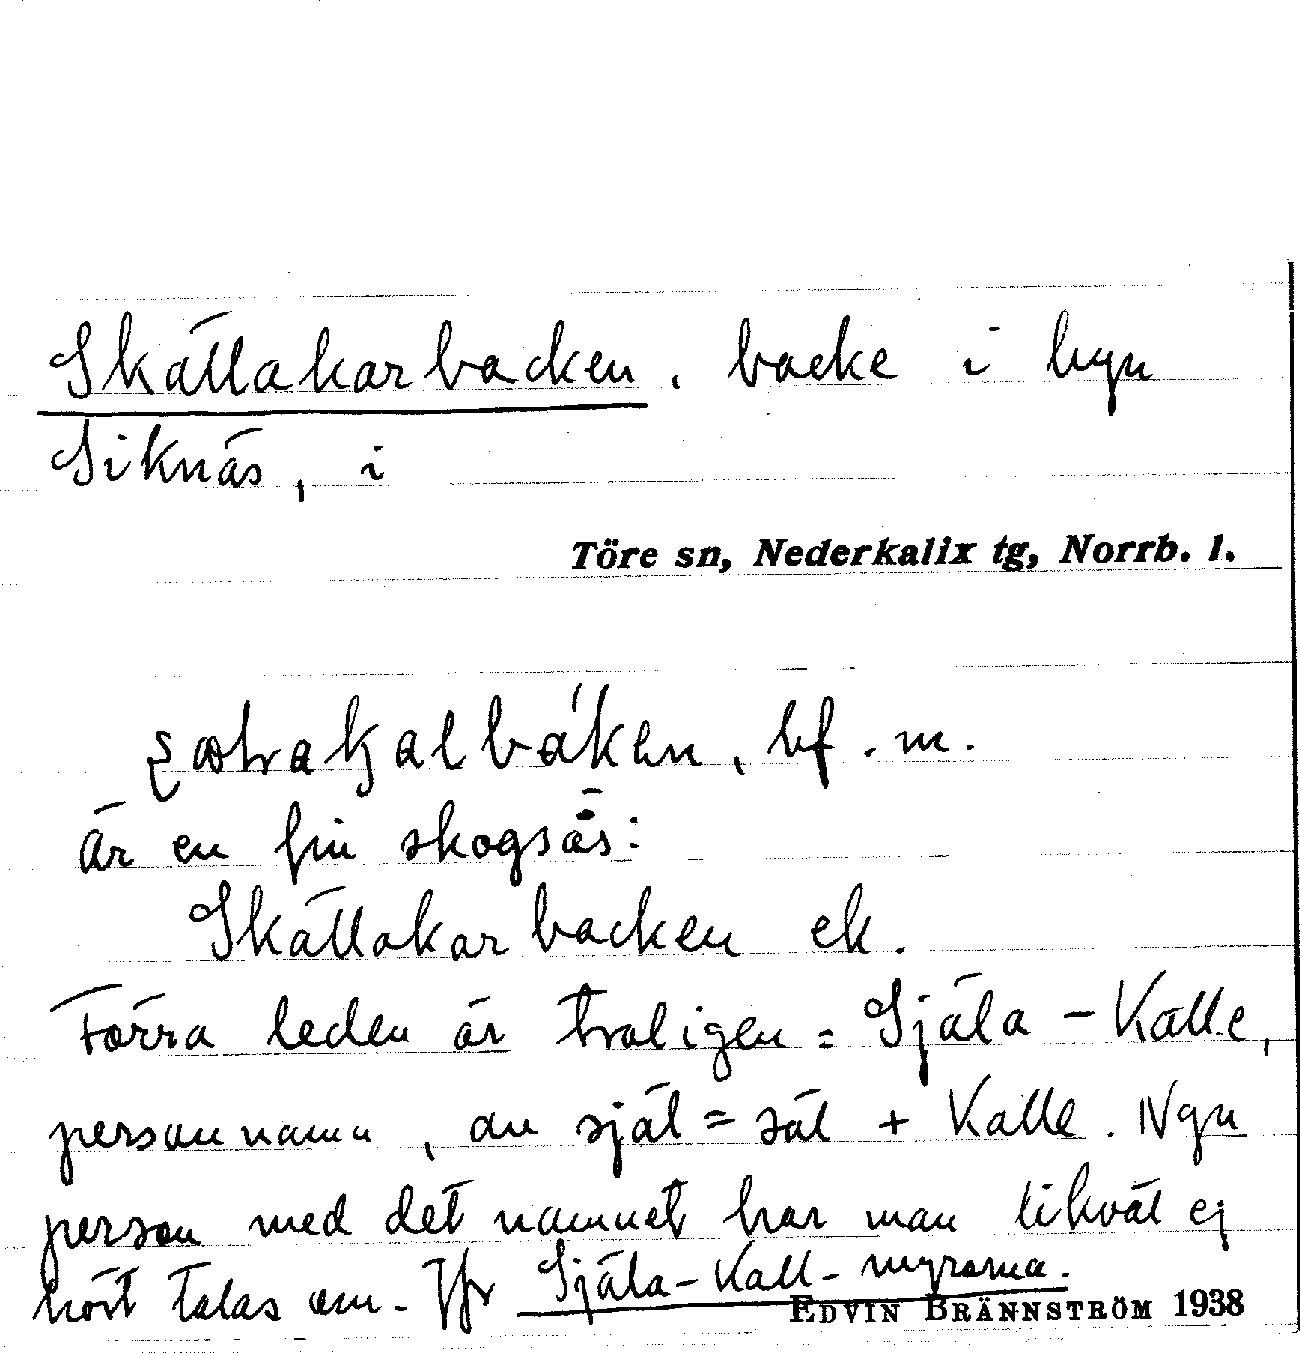 Skällakarbacken, backe i byn
Siknäs, i
Töre sn, Nederkalix tg, Norrb. l.
bf. m.
är en fin skogsås:
Skällakarbacken ek.
Förra leden är troligen = Själa-Kalle,
personnamn, av själ = säl + Kalle. Ngn
person med det namnet har man likväl ej
hört talas om. Jfr Själa-Kall-myrarna.
EDVIN BRÄNNSTRÖM 1938